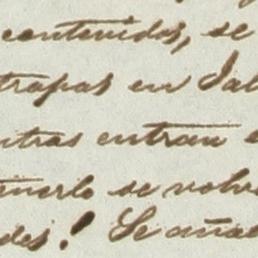 contenidos, se
trapas en Sal
ntras entran e
enerlo se volv
des! Se aña